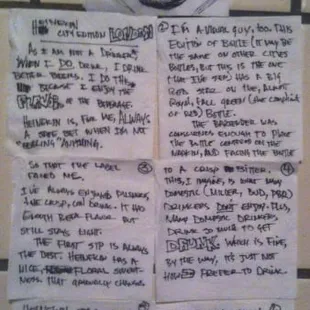 HEINEKEN
CITY EDITION LONDON
AS I AM NOT A DRINKER,
WHEN I DO DRINK, I DRINK
BETTER BEERS. I DO THIS
BECAUSE I ENJOY THE
FLAVOR OF THE BEVERAGE.
HEINEKEN IS, FOR ME, ALWAYS
A SAFE BET WHEN I'M NOT
FEELING ANYTHING.
2
I'M A VISUAL GUY, TOO. THIS
EDITION OF BOTTLE (IT MAY BE
THE SAME ON OTHER CITIES
BOTTLES, BUT THIS IS THE ONE
I HAD) HAS A BIG
RED STAR ON THE, ALMOST
ROYAL, FULL GREEN (THE COMPLIMENT
OF RED) BOTTLE.
THE BARTENDER WAS
CONSCIENCOUS ENOUGH TO PLACE
THE BOTTLE CENTERED ON THE
NAPKIN, AND FACING THE BOTTLE
3
SO THAT THE LABEL
FACED ME.
I'VE ALWAYS ENJOYED PILSNERS,
THE CRISP, COOL DRINK. IT HAS
ENOUGH BEER FLAVOR BUT
STILL STAYS LIGHT.
THE FIRST SIP IS ALWAYS
THE BEST. HEINEKEN HAS A
NICE, FLORAL SWEET-
NESS THAT GRADUALLY CHANGES
4
TO A CRISP BITTER.
THIS, I IMAGINE, IS WHAT MANY
DOMESTIC (MILLER, BUD, PBR)
DRINKERS DON'T ENJOY. PLUS,
MANY DOMESTIC DRINKERS
DRINK SO MUCH TO GET
DRUNK. WHICH IS FINE,
BY THE WAY, IT'S JUST NOT
HOW I PREFER TO DRINK.